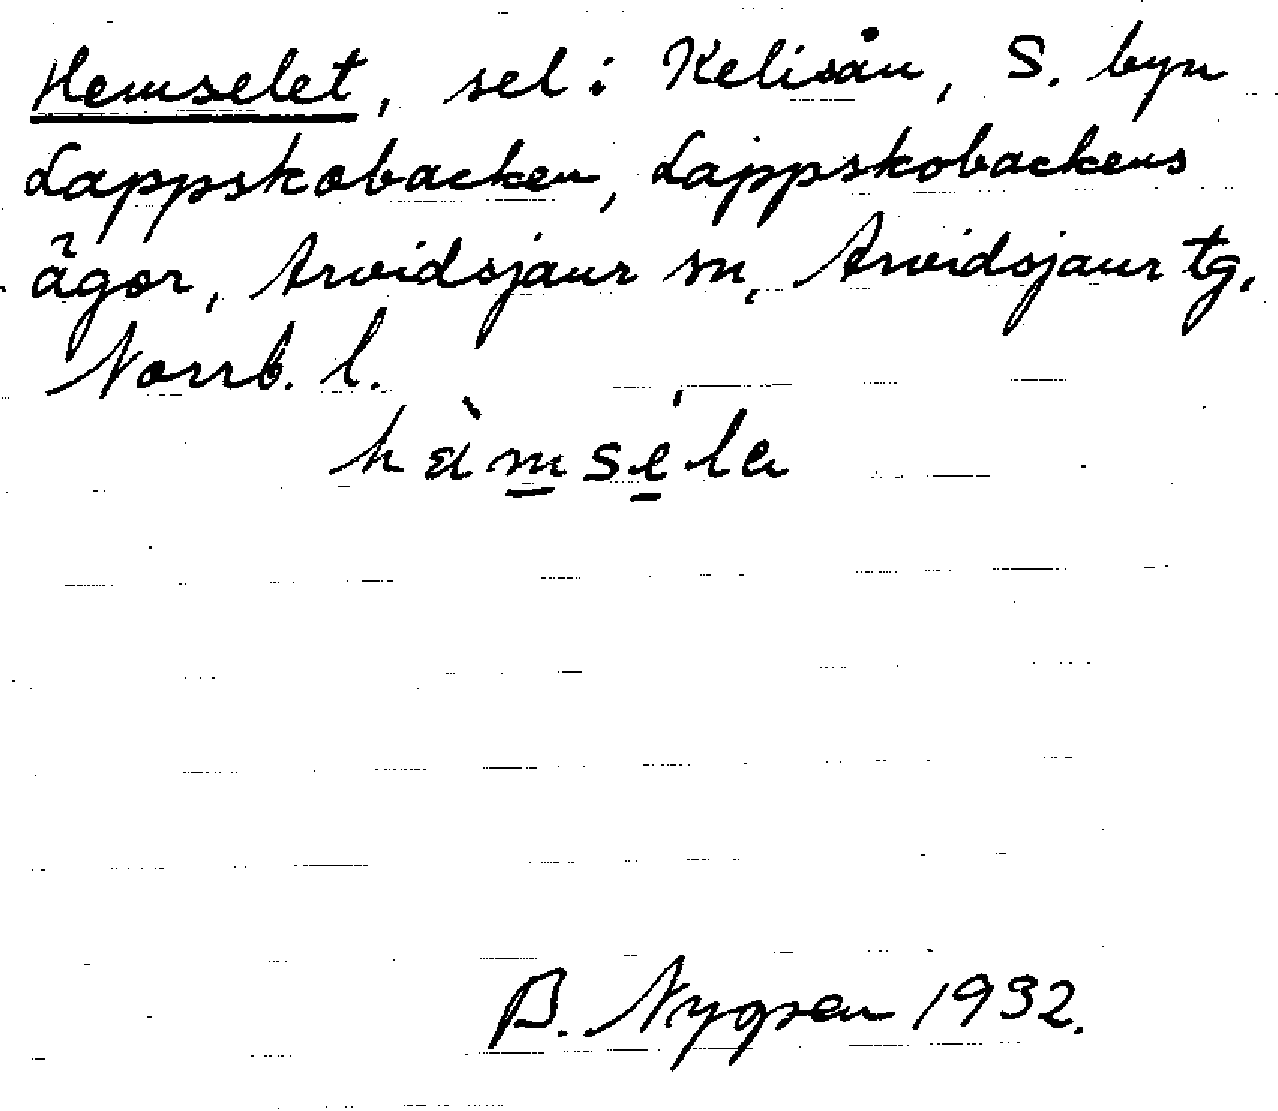 Hemselet, sel i Kelisån, S. byn
Lappskobacken, Lappskobackens
ägor, Arvidsjaur sn, Arvidsjaur tg.
Norrb. l.
hàmséla
B. Nygren 1932.